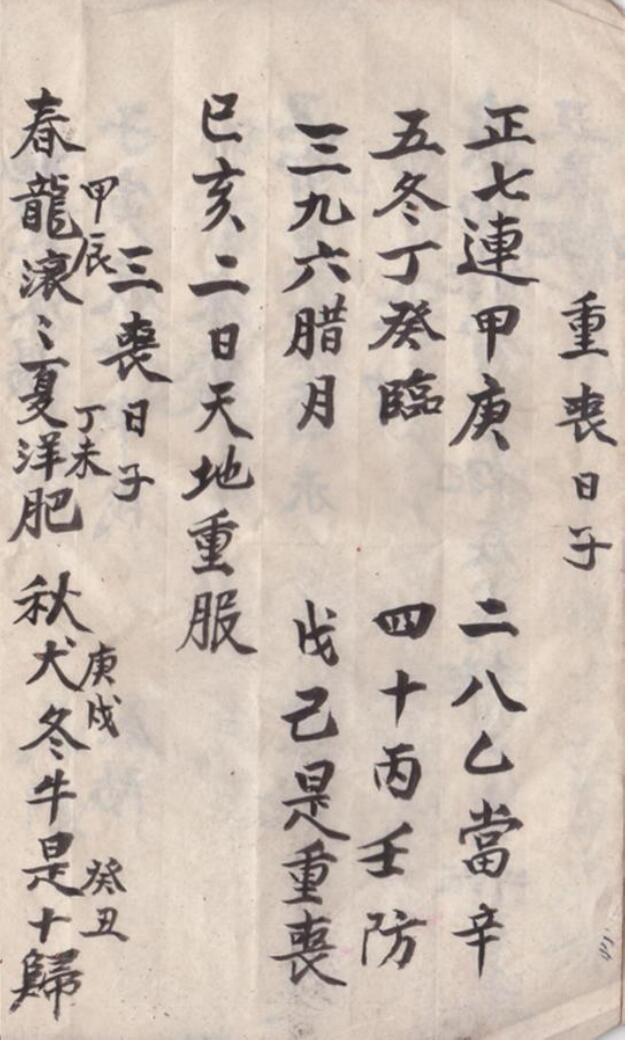 重喪日子
正七連甲庚 二八乙當辛
五冬丁癸臨 四十丙壬防
三九六腊月 戊己是重喪
巳亥二日天地重服
三喪日子
春龍滾〻夏洋肥 秋犬冬牛是十歸
甲辰 丁未 庚戌 癸丑